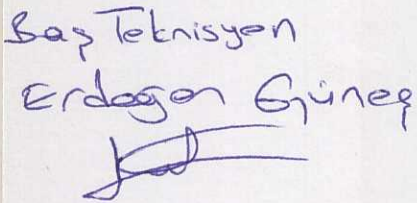 Baş Teknisyen
Erdoğan Güneş